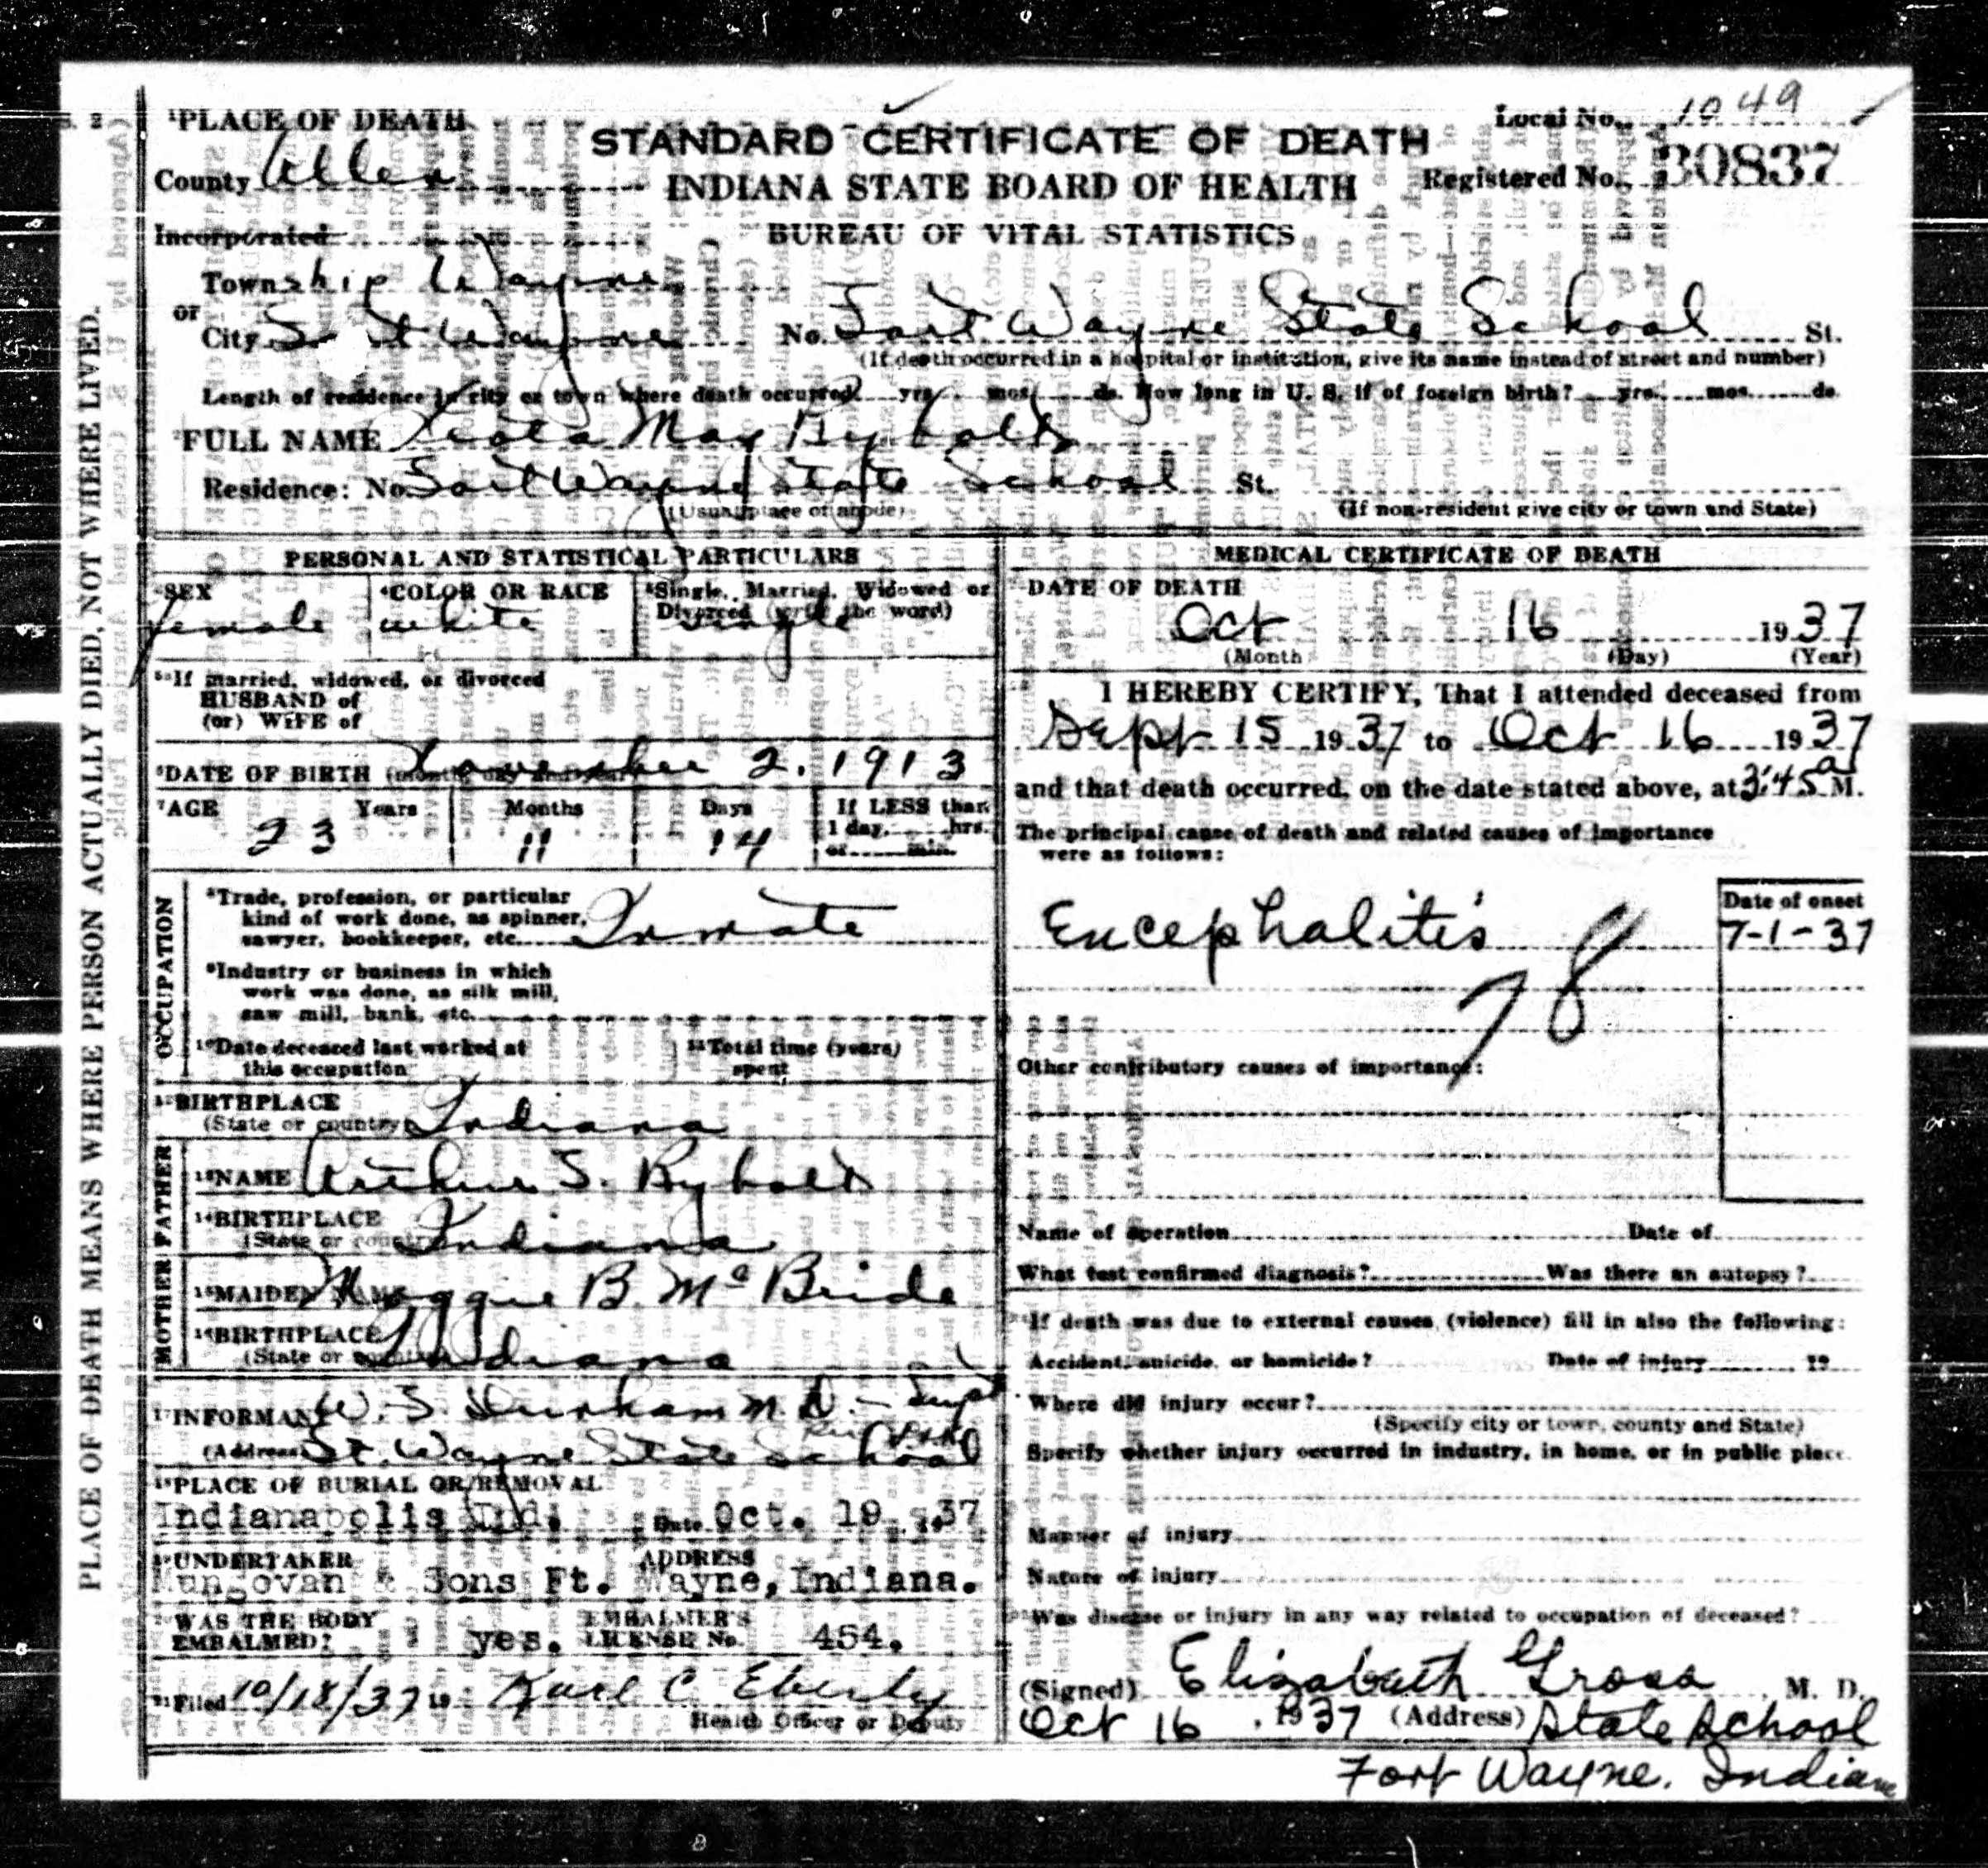 PLACE OF DEATH
STANDARD CERTIFICATE OF DEATH
Local No. 1049
County Allen
INDIANA STATE BOARD OF HEALTH
Registered No. 30837
Incorporated
BUREAU OF VITAL STATISTICS
Township Wayne
or
City Wayne No. Fort Wayne State School St.
(If death occurred in a hospital or institution, give its name instead of street and number)
Length of residence in city or town where death occurred yrs. mos. ds. How long in U. S. if of foreign birth? yrs. mos. ds.
FULL NAME May Rybolt
Residence: No. Fort Wayne State School St.
(Usual place of abode) (If non-resident give city or town and State)
PERSONAL AND STATISTICAL PARTICULARS
SEX 4COLOR OR RACE 5Single, Married, Widowed or
Divorced (write the word)
female white single
5aIf married, widowed, or divorced
HUSBAND of
(or) WIFE of
6DATE OF BIRTH November 2, 1913
7AGE Years Months Days If LESS than
1 day, hrs.
or min.
23 11 14
OCCUPATION
8Trade, profession, or particular
kind of work done, as spinner,
sawyer, bookkeeper, etc. Inmate
9Industry or business in which
work was done, as silk mill,
saw mill, bank, etc.
10Date deceased last worked at
this occupation
11Total time (years)
spent
12BIRTHPLACE
(State or country) Indiana
FATHER
13NAME Arthur S. Rybolt
14BIRTHPLACE
(State or country) Indiana
MOTHER
15MAIDEN NAME Maggie B. McBride
16BIRTHPLACE
(State or country) Indiana
17INFORMANT W. S. Durham M.D. - Supt
(Address) Ft. Wayne State School
18PLACE OF BURIAL OR REMOVAL
Indianapolis Ind. Date Oct. 19 1937
19UNDERTAKER ADDRESS
Mungovan & Sons Ft. Wayne, Indiana.
WAS THE BODY
EMBALMED? yes. EMBALMER'S
LICENSE No. 454.
21Filed 10/18/37 19 Karl C. Eberly
Health Officer or Deputy
MEDICAL CERTIFICATE OF DEATH
DATE OF DEATH
Oct 16 1937
(Month (Day) (Year)
I HEREBY CERTIFY, That I attended deceased from
Sept 15 1937 to Oct 16 1937
and that death occurred, on the date stated above, at 3:45 a M.
The principal cause of death and related causes of importance
were as follows:
Date of onset
Encephalitis 7-1-37
78
Other contributory causes of importance:
Name of operation Date of
What test confirmed diagnosis? Was there an autopsy?
If death was due to external causes (violence) fill in also the following:
Accident, suicide, or homicide? Date of injury 19
Where did injury occur?
(Specify city or town, county and State)
Specify whether injury occurred in industry, in home, or in public place.
Manner of injury
Nature of injury
Was disease or injury in any way related to occupation of deceased?
(Signed) Elizabeth Gross M. D.
Oct 16, 1937 (Address) State School
Fort Wayne. Indiana
PLACE OF DEATH MEANS WHERE PERSON ACTUALLY DIED, NOT WHERE LIVED.